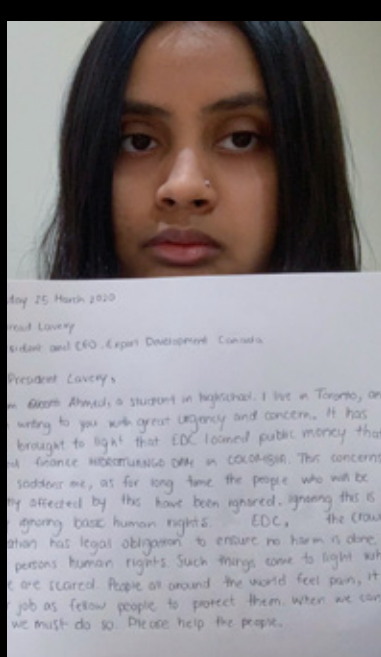 day 25 March 2020
read Lavery
sident and CEO, Export Development Canada
President Lavery,
m Ahmed, a student in highschool. I live in Toronto, an
writing to you with great urgency and concern. It has
brought to light that EDC loaned public money that
finance HIDROITUANGO DAM in COLOMBIA. This concerns
saddens me, as for long time the people who will be
by affected by this have been ignored. ignoring this is
ignoring basic human rights. EDC, the crow
ation has legal obligation to ensure no harm is done
persons human rights. Such things come to light wh
e are scared. People all around the world feel pain, it
job as fellow people to protect them. When we can
we must do so. Please help the people.